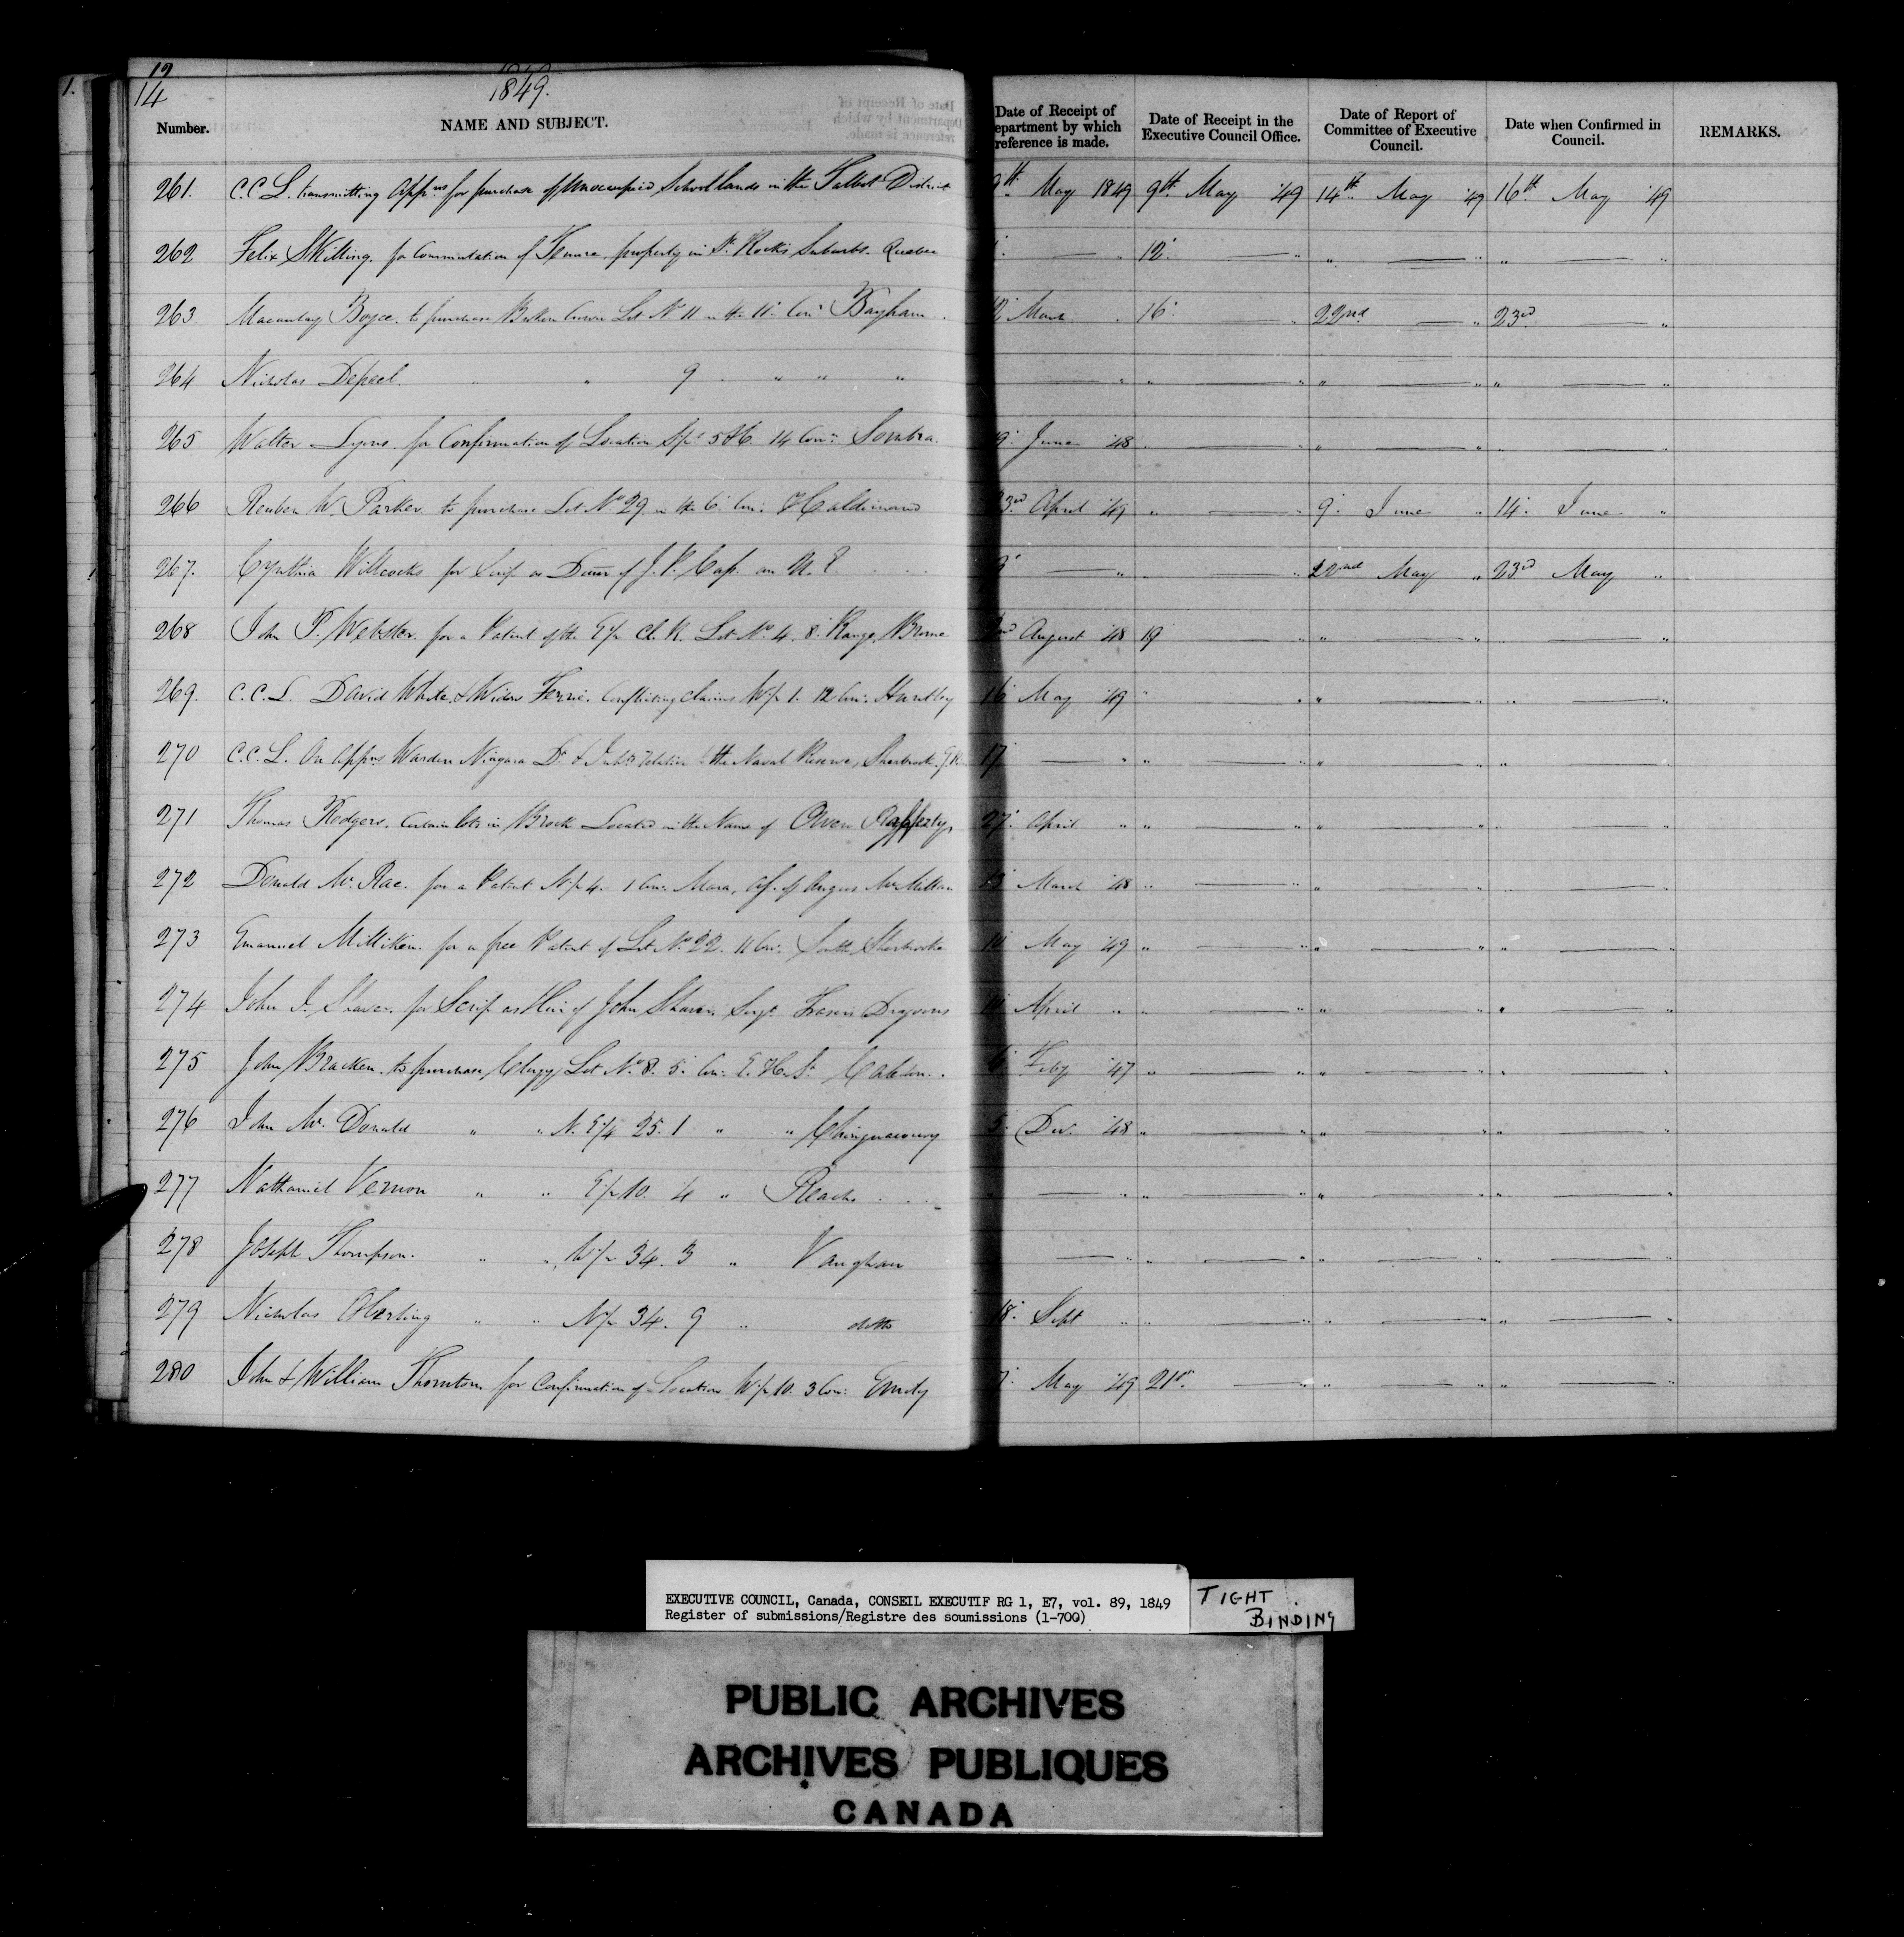 12
14
1849.
Number. NAME AND SUBJECT. Date of Receipt of epartment by which reference is made. Date of Receipt in the Executive Council Office. Date of Report of Committee of Executive Council. Date when Confirmed in Council. REMARKS.
261. C.C.L. transmitting Appns for purchase of Unoccupied School lands in the Talbot District 9th May 1849 9th May '49 14th May '49 16th May '49
262 Felix for Commutation of Tenure, property in St. Rochs Suburbs. Quebec — " 12 — " " — " " — "
263 Macaulay Boyce. to purchase Broken Lot No 11 in the 11 Con: Bayham. 12 March " 16 — " 22nd — " 23rd — "
264 Nicholas Depeel. " " 9 " " " — " " — " " — " " — "
265 Walter Lyons. for Confirmation of Location 14 Con: Sombra. 19 June '48 " — " " — " " — "
266 Reuben W. Parker to purchase Lot No 29 in the 6 Con: Haldimand 23rd April '49 " — " 9 June " 14 June "
267. Cynthia Willcocks for Scrip as Daur of J. P. Cass an U.E. — " — " 22nd May " 23rd May "
268 John P. Webster. for a Patent of the E½ Cl. R. Lot No 4. 8 Range, Brome 2nd August '48 19 — " " — " " — "
269. C.C.L. David White & Widow Ferrie. Conflicting Claims W½ 1. 12 Con: Huntley 16 May '49 " — " " — " " — "
270 C.C.L. On Appns Warden Niagara Dt & the Naval Reserve, Sherbrooke 17 — " " — " " — " " — "
271 Thomas Rodgers. Certain lots in Brock Located in the Name of Owen Rafferty, 27 April " " — " " — " " — "
272 Donald McRae. for a Patent N½ 4. 1 Con: Mara, of Angus McMillan 13 March '48 " — " " — " " — "
273 Emanuel Milliken. for a free Patent of Lot No 22. 11 Con: South Sherbrooke 10 May '49 " — " " — " " — "
274 John I. for Scrip as Heir of John Sergt. Frasers Dragoons April " " — " " — " " — "
275 John Bracken. to purchase Clergy Lot No 8. 5 Con: E. H. St. Caledon. Feby '47 " — " " — " " — "
276 John McDonald " " N.E¼ 25. 1 " " Chinguacousy 5 Dec. '48 " — " " — " " — "
277 Nathaniel Vernon " " E½ 10. 4 " Reach " — " " — " " — " " — "
278 Joseph Thompson. " " W½ 34. 3 " Vaughan — " " — " " — " " — "
279 Nicholas " " N½ 34. 9 " ditto 18 Sept " " — " " — " " — "
280 John & William Thornton for Confirmation of Location W½ 10. 3 Con: Emily 7 May '49 21st — " " — " " — "
EXECUTIVE COUNCIL, Canada, CONSEIL EXECUTIF RG 1, E7, vol. 89, 1849
Register of submissions/Registre des soumissions (1-700)
TIGHT
BINDING
PUBLIC ARCHIVES
ARCHIVES PUBLIQUES
CANADA